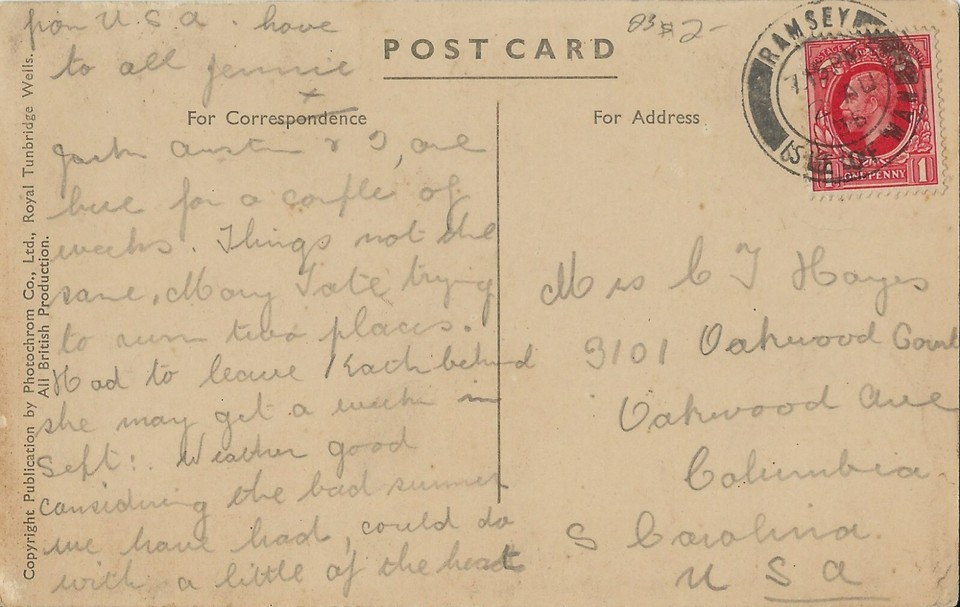 from U.S.A. love
to all Jennie
x
POST CARD
23 $2-
RAMSEY
ISLE OF MAN
ONE PENNY
1
For Correspondence
For Address
Jack Austin & I, are
here for a couple of
weeks. Things not the
same, Mary Tate trying
to run two places.
Had to leave Kath behind
she may get a week in
Sept: Weather good
considering the bad summer
we have had, could do
with a little of the heat
Mrs C T Hayes
3101 Oakwood Court
Oakwood Ave
Columbia
S Carolina
U S A
Copyright Publication by Photochrom Co., Ltd., Royal Tunbridge Wells.
All British Production.